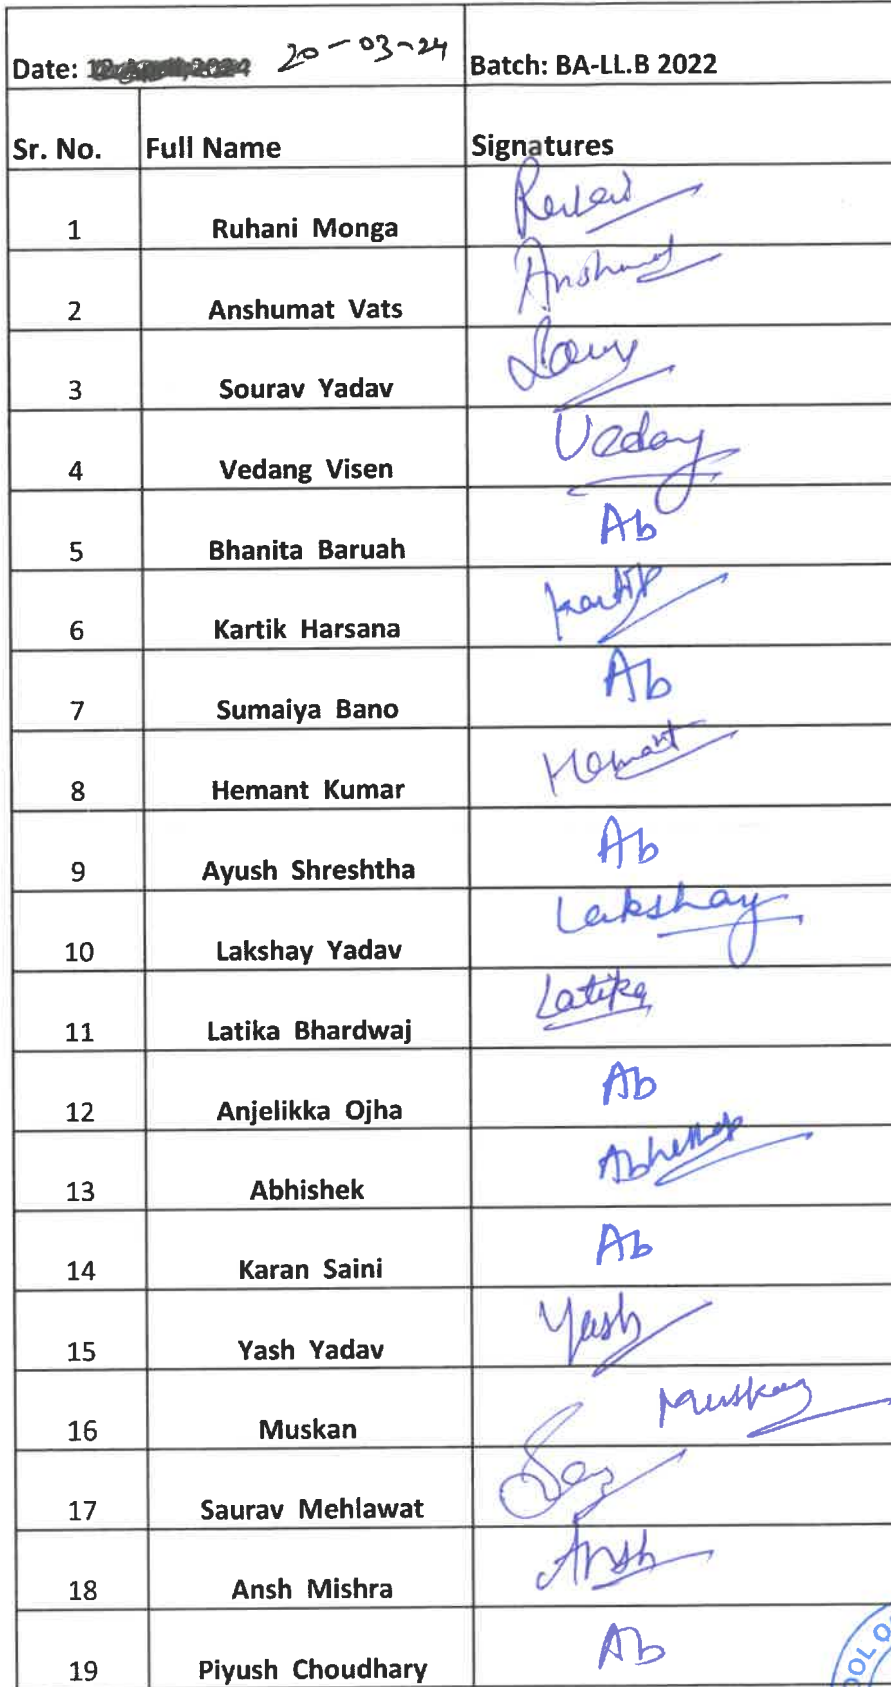 Date: 20-03-24 Batch: BA-LL.B 2022
Sr. No. Full Name Signatures
1 Ruhani Monga
2 Anshumat Vats Anshumat
3 Sourav Yadav
4 Vedang Visen Vedang
5 Bhanita Baruah Ab
6 Kartik Harsana Kartik
7 Sumaiya Bano Ab
8 Hemant Kumar Hemant
9 Ayush Shreshtha Ab
10 Lakshay Yadav Lakshay
11 Latika Bhardwaj Latika
12 Anjelikka Ojha Ab
13 Abhishek Abhishek
14 Karan Saini Ab
15 Yash Yadav Yash
16 Muskan Muskan
17 Saurav Mehlawat
18 Ansh Mishra Ansh
19 Piyush Choudhary Ab
OOL O